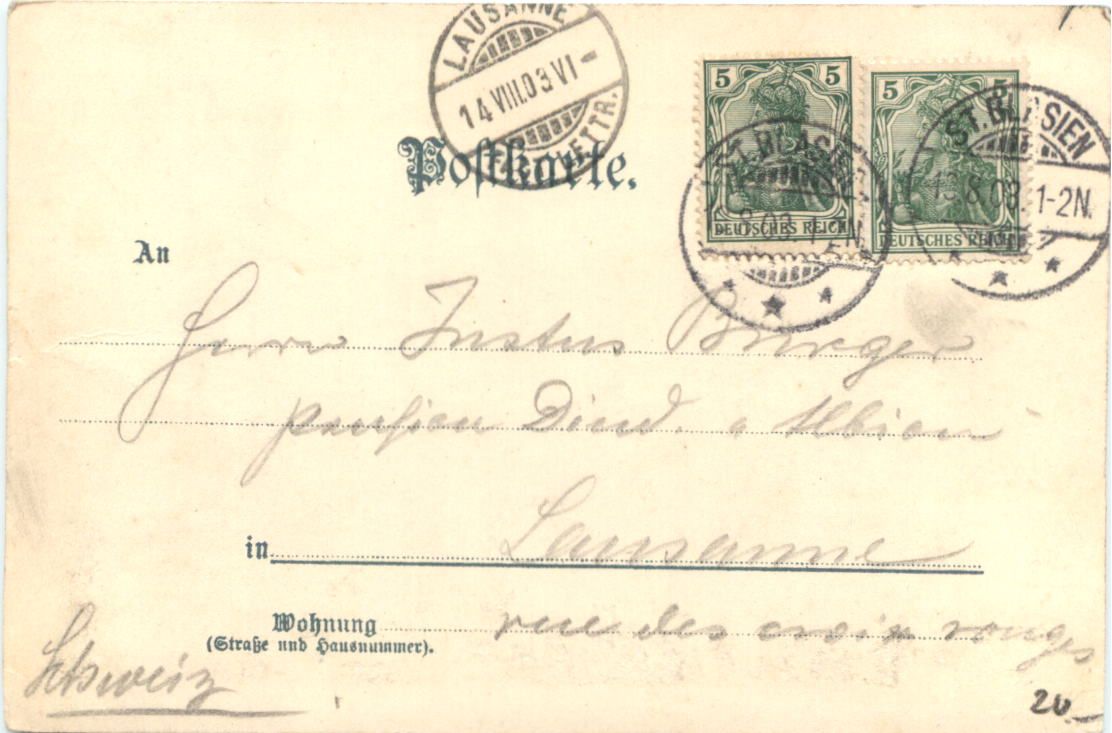 LAUSANNE
14 VIII.03 VI -
LETTR.
Postkarte.
5 5
DEUTSCHES REICH
5 5
DEUTSCHES REICH
ST. BLASIEN
8.03. 1-2N
ST. BLASIEN
13.8.03. 1-2N.
An
Herrn Justus Burger
pension Albion
in Lausanne
Wohnung rue des croix rouges
(Straße und Hausnummer).
Schweiz
20